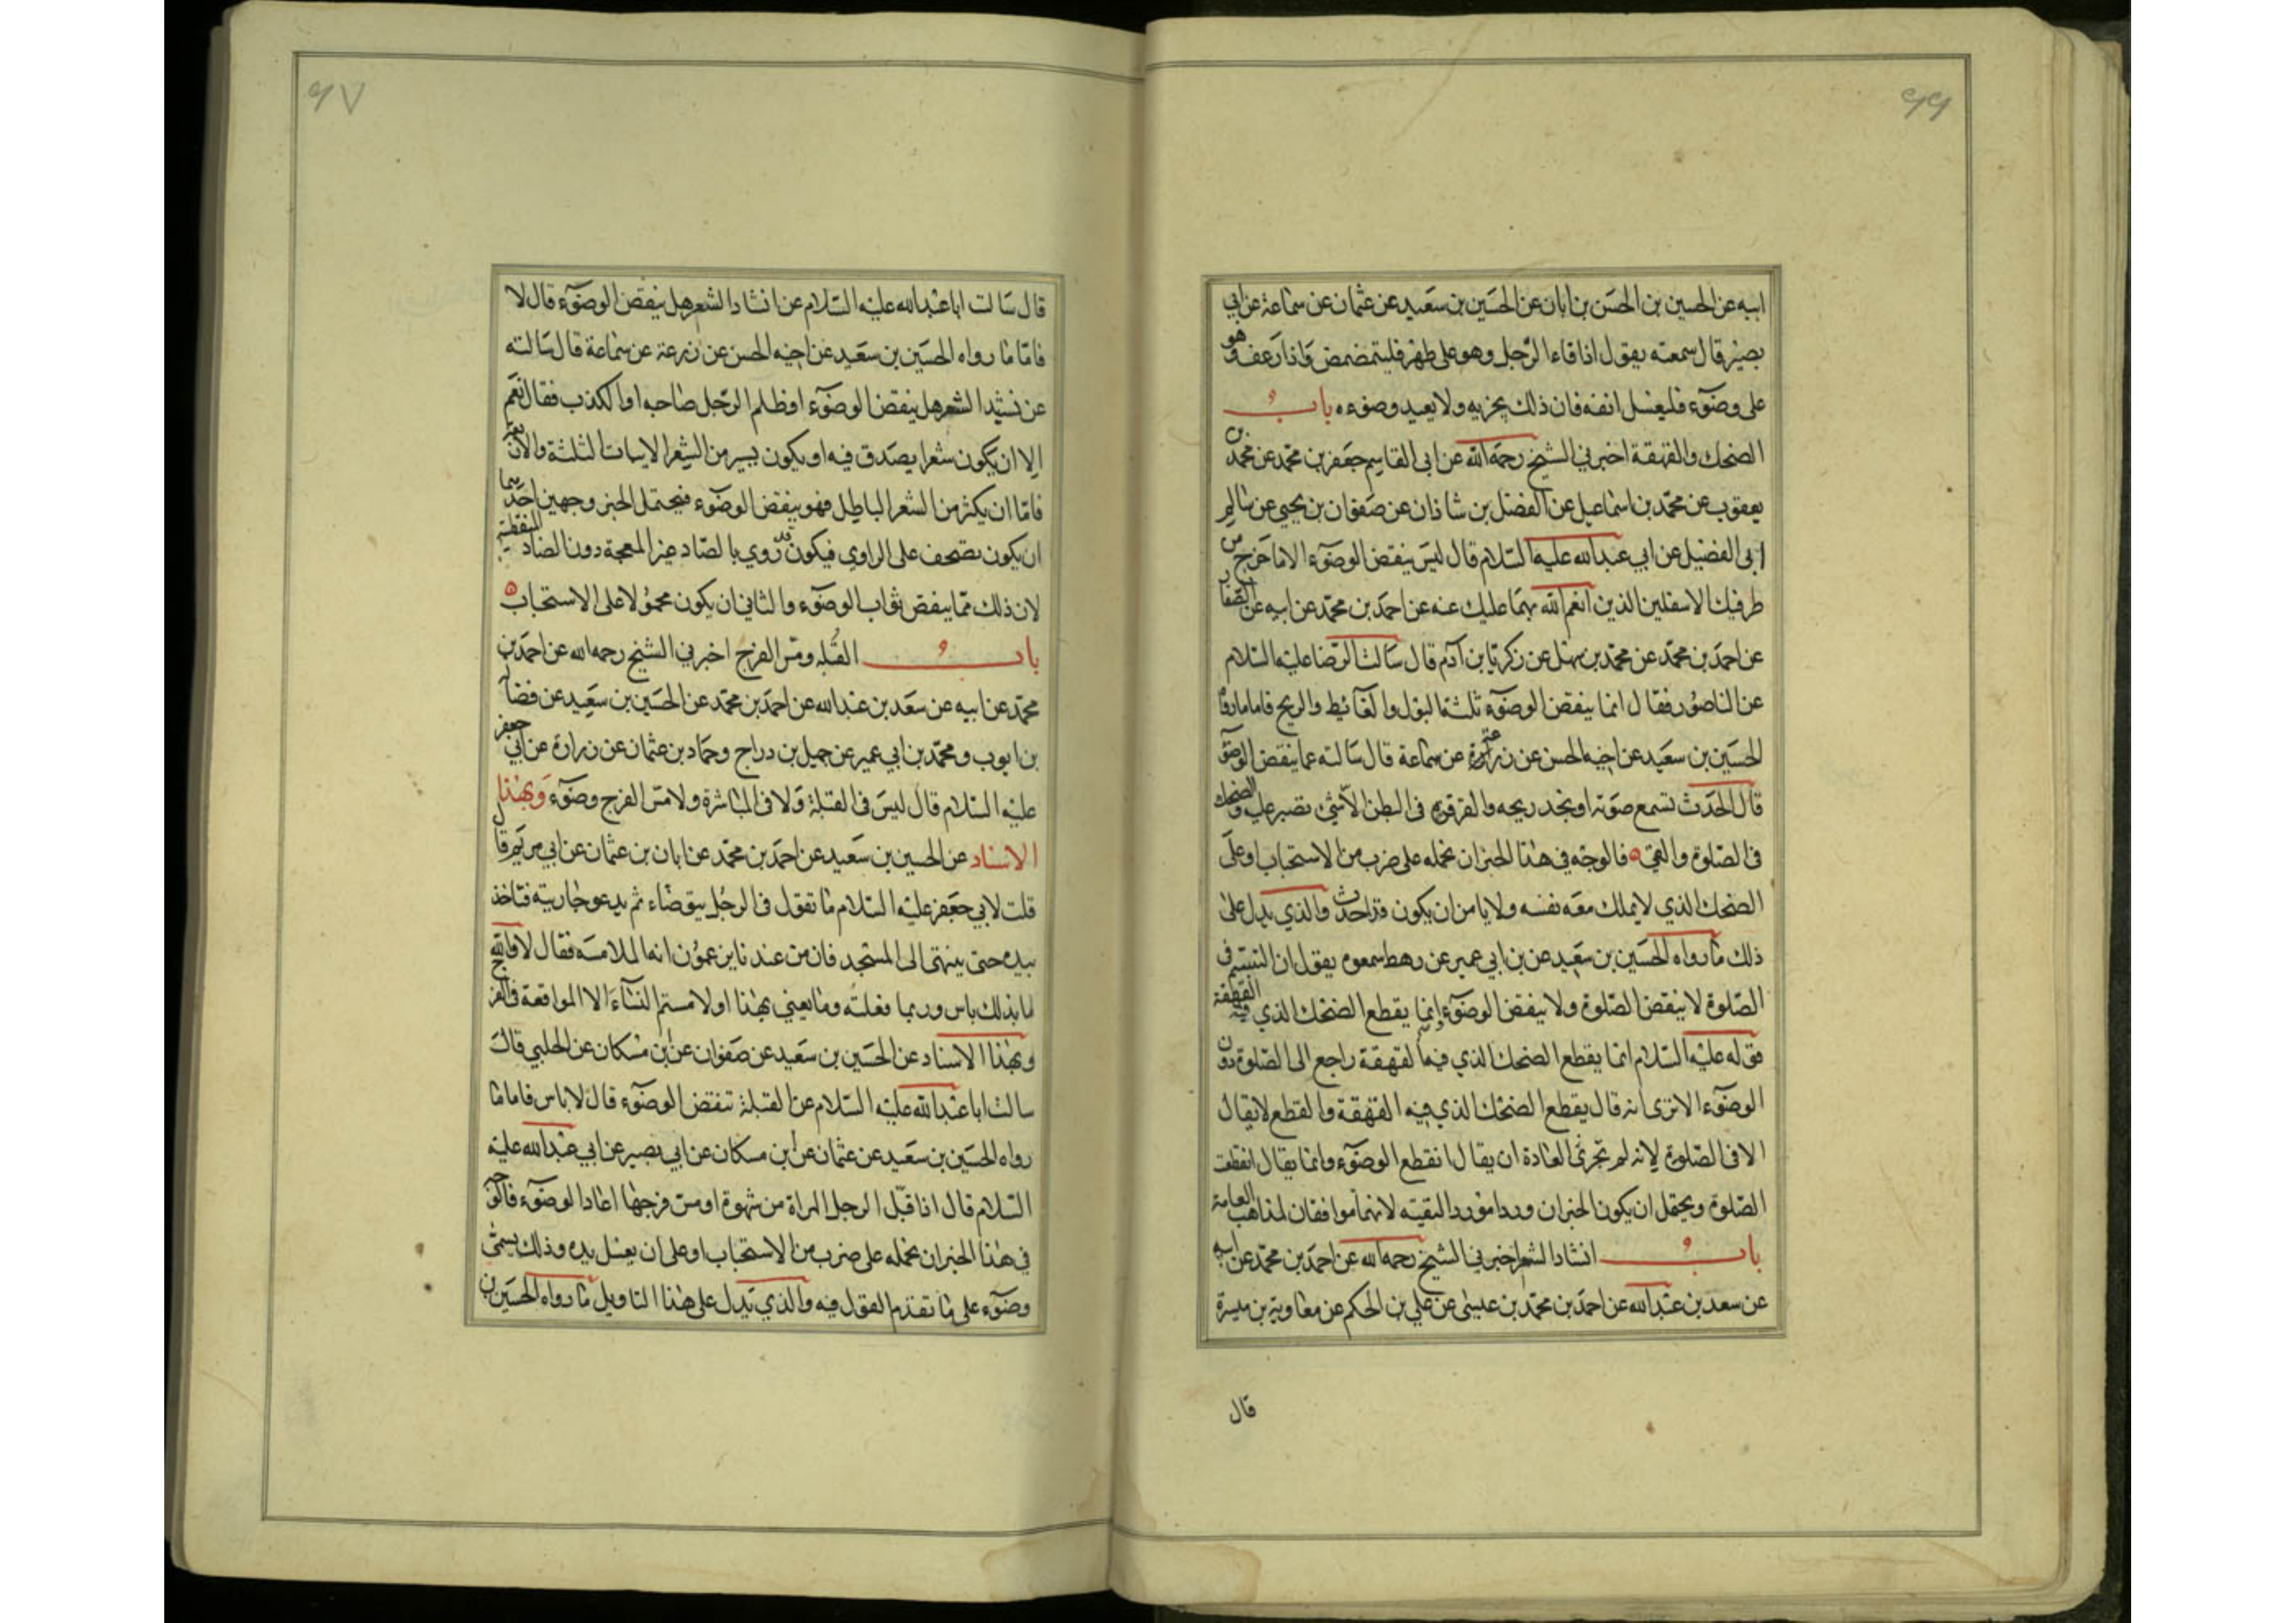 ٦٦
ابيه عن الحسين بن الحسن بن ابان عن الحسين بن سعيد عن عثمان عن سماعة عن ابي
بصير قال سمعته يقول اذا قاء الرجل وهو على طهر فليتمضمض واذا رعف وهو
على وضوء فليغسل انفه فان ذلك يجزيه ولا يعيد وضوءه باب
الضحك والقهقهة اخبرني الشيخ رحمه الله عن ابي القاسم جعفر بن محمد عن محمد بن
يعقوب عن محمد بن اسماعيل عن الفضل بن شاذان عن صفوان بن يحيى عن سالم
ابي الفضيل عن ابي عبد الله عليه السلام قال ليس ينقض الوضوء الا ما خرج من
طرفيك الاسفلين الذين انعم الله بهما عليك عنه عن احمد بن محمد عن ابيه عن الصفار
عن احمد بن محمد عن محمد بن سهل عن زكريا بن آدم قال سالت الرضا عليه السلام
عن الناصور فقال انما ينقض الوضوء ثلثة البول والغائط والريح فاما مارواه
الحسين بن سعيد عن اخيه الحسن عن زرعة عن سماعة قال سالته عما ينقض الوضوء
قال الحدث تسمع صوته او تجد ريحه والقرقرة في البطن الا شئ تصبر عليه والضحك
في الصلوة والقئ فالوجه في هذا الخبر ان نحمله على ضرب من الاستحباب او على
الضحك الذي لا يملك معه نفسه ولا يامن ان يكون قد احدث والذي يدل على
ذلك ما رواه الحسين بن سعيد عن بن ابي عمير عن رهط سمعوه يقول ان التبسم في
الصلوة لا ينقض الصلوة ولا ينقض الوضوء انما يقطع الضحك الذي فيه القهقهة
فقوله عليه السلام انما يقطع الضحك الذي فيه القهقهة راجع الى الصلوة دون
الوضوء الا ترى انه قال يقطع الضحك الذي فيه القهقهة والقطع لا يقال
الا في الصلوة لانه لم تجرى العادة ان يقال انقطع الوضوء وانما يقال انقطعت
الصلوة ويحتمل ان يكون الخبران وردا مورد التقيه لانهما موافقان لمذاهب العامة
باب انشاد الشعر اخبرني الشيخ رحمه الله عن احمد بن محمد عن ابيه
عن سعد بن عبد الله عن احمد بن محمد بن عيسى عن علي بن الحكم عن معاوية بن ميسرة
قال
٦٧
قال سالت ابا عبد الله عليه السلام عن انشاد الشعر هل ينقض الوضوء قال لا
فاما ما رواه الحسين بن سعيد عن اخيه الحسن عن زرعة عن سماعة قال سالته
عن نشيد الشعر هل ينقض الوضوء او ظلم الرجل صاحبه او الكذب فقال نعم
الا ان يكون شعرا يصدق فيه او يكون يسير من الشعر الابيات الثلثة والاربعة
فاما ان يكثر من الشعر الباطل فهو ينقض الوضوء فيحتمل الخبر وجهين احدهما
ان يكون تصحف على الراوي فيكون قد روي بالصاد غير المعجمة دون الضاد المنقطة
لان ذلك مما ينقص ثواب الوضوء والثاني ان يكون محمولا على الاستحباب
باب القبلة ومس الفرج اخبرني الشيخ رحمه الله عن احمد بن
محمد عن ابيه عن سعد بن عبد الله عن احمد بن محمد عن الحسين بن سعيد عن فضالة
بن ايوب ومحمد بن ابي عمير عن جميل بن دراج وحماد بن عثمان عن زرارة عن ابي جعفر
عليه السلام قال ليس في القبلة ولا في المباشرة ولا مس الفرج وضوء وبهذا
الاسناد عن الحسين بن سعيد عن احمد بن محمد عن ابان بن عثمان عن ابي مريم قال
قلت لابي جعفر عليه السلام ما تقول في الرجل يتوضاء ثم يدعو جاريته فتاخذ
بيده حتى ينتهى الى المسجد فان من عندنا يزعمون انها الملامسه فقال لا والله
ما بذلك باس وربما فعلته وما يعني بهذا او لامستم النساء الا المواقعة في الفرج
وبهذا الاسناد عن الحسين بن سعيد عن صفوان عن بن مسكان عن الحلبي قال
سالت ابا عبد الله عليه السلام عن القبلة تنقض الوضوء قال لا باس فاما ما
رواه الحسين بن سعيد عن عثمان عن بن مسكان عن ابي بصير عن ابي عبد الله عليه
السلام قال اذا قبل الرجل المراة من شهوة او مس فرجها اعاد الوضوء فالوجه
في هذا الخبر ان نحمله على ضرب من الاستحباب او على ان يغسل يده وذلك يسمى
وضوء على ما تقدم القول فيه والذي يدل على هذا التاويل ما رواه الحسين بن